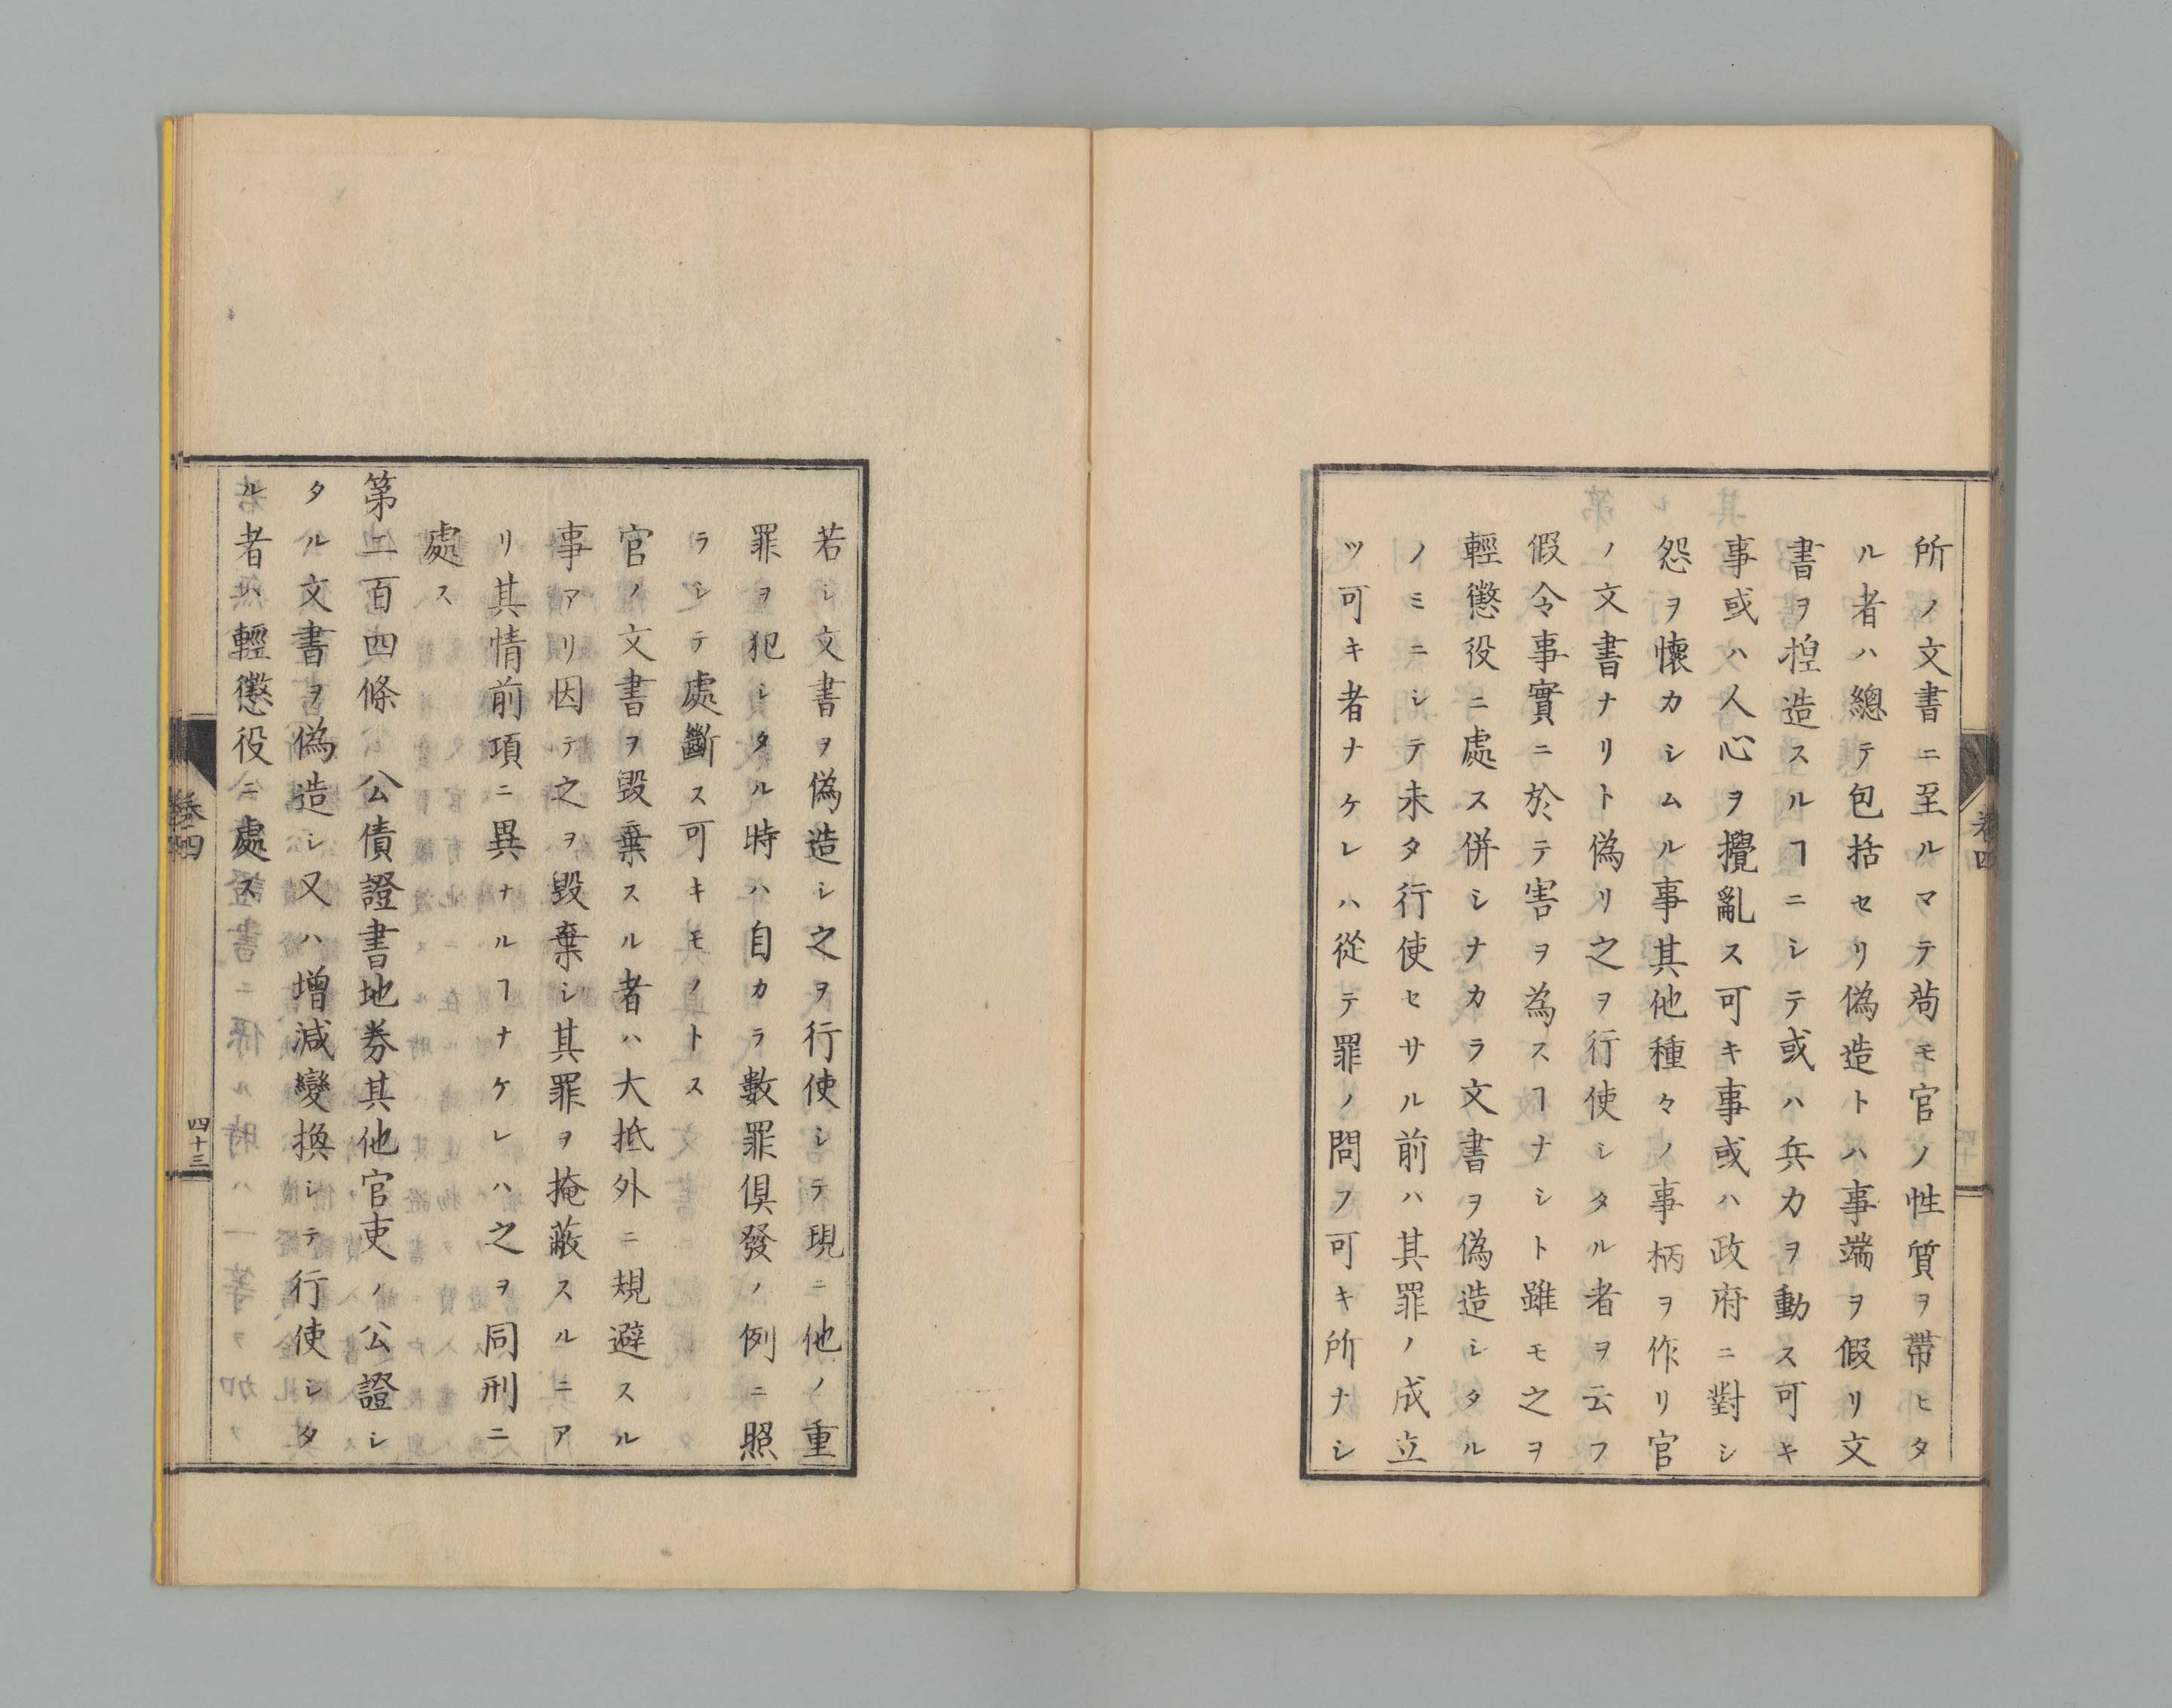 所ノ文書ニ至ルマテ苟モ官ノ性質ヲ帶ヒタ
ル者ハ總テ包括セリ偽造トハ事端ヲ假リ文
書ヲ揑造スルヿニシテ或ハ兵力ヲ動ス可キ
事或ハ人心ヲ攪亂ス可キ事或ハ政府ニ對シ
怨ヲ懷カシムル事其他種々ノ事柄ヲ作リ官
ノ文書ナリト偽リ之ヲ行使シタル者ヲ云フ
假令事實ニ於テ害ヲ為スヿナシト雖モ之ヲ
輕懲役ニ處ス併シナカラ文書ヲ偽造シタル
ノミニシテ未タ行使セサル前ハ其罪ノ成立
ツ可キ者ナケレハ從テ罪ノ問フ可キ所ナシ
卷四
若シ文書ヲ偽造シ之ヲ行使シテ現ニ他ノ重
罪ヲ犯シタル時ハ自カラ數罪俱發ノ例ニ照
ラシテ處斷ス可キモノトス
官ノ文書ヲ毀棄スル者ハ大抵外ニ規避スル
事アリ因テ之ヲ毀棄シ其罪ヲ掩蔽スルニア
リ其情前項ニ異ナルヿナケレハ之ヲ同刑ニ
處ス
第二百四條　公債證書地券其他官吏ノ公證シ
タル文書ヲ偽造シ又ハ增減變換シテ行使シタ
ル者ハ輕懲役ニ處ス
卷四
四十三